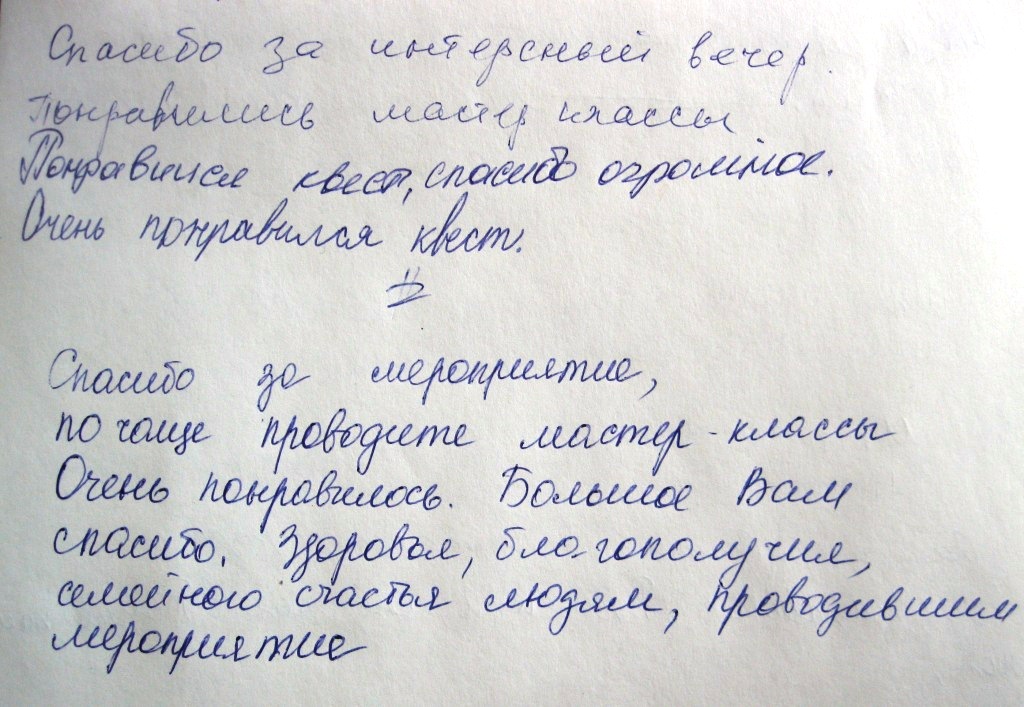 Спасибо за интерсный вечер.
Понравились мастер классы
Понравился квест, спасибо огромное.
Очень понравился квест.
Спасибо за мероприятие,
по чаще проводите мастер-классы
Очень понравилось. Большое Вам
спасибо. Здоровья, благополучия,
семейного счастья людям, проводившим
мероприятие